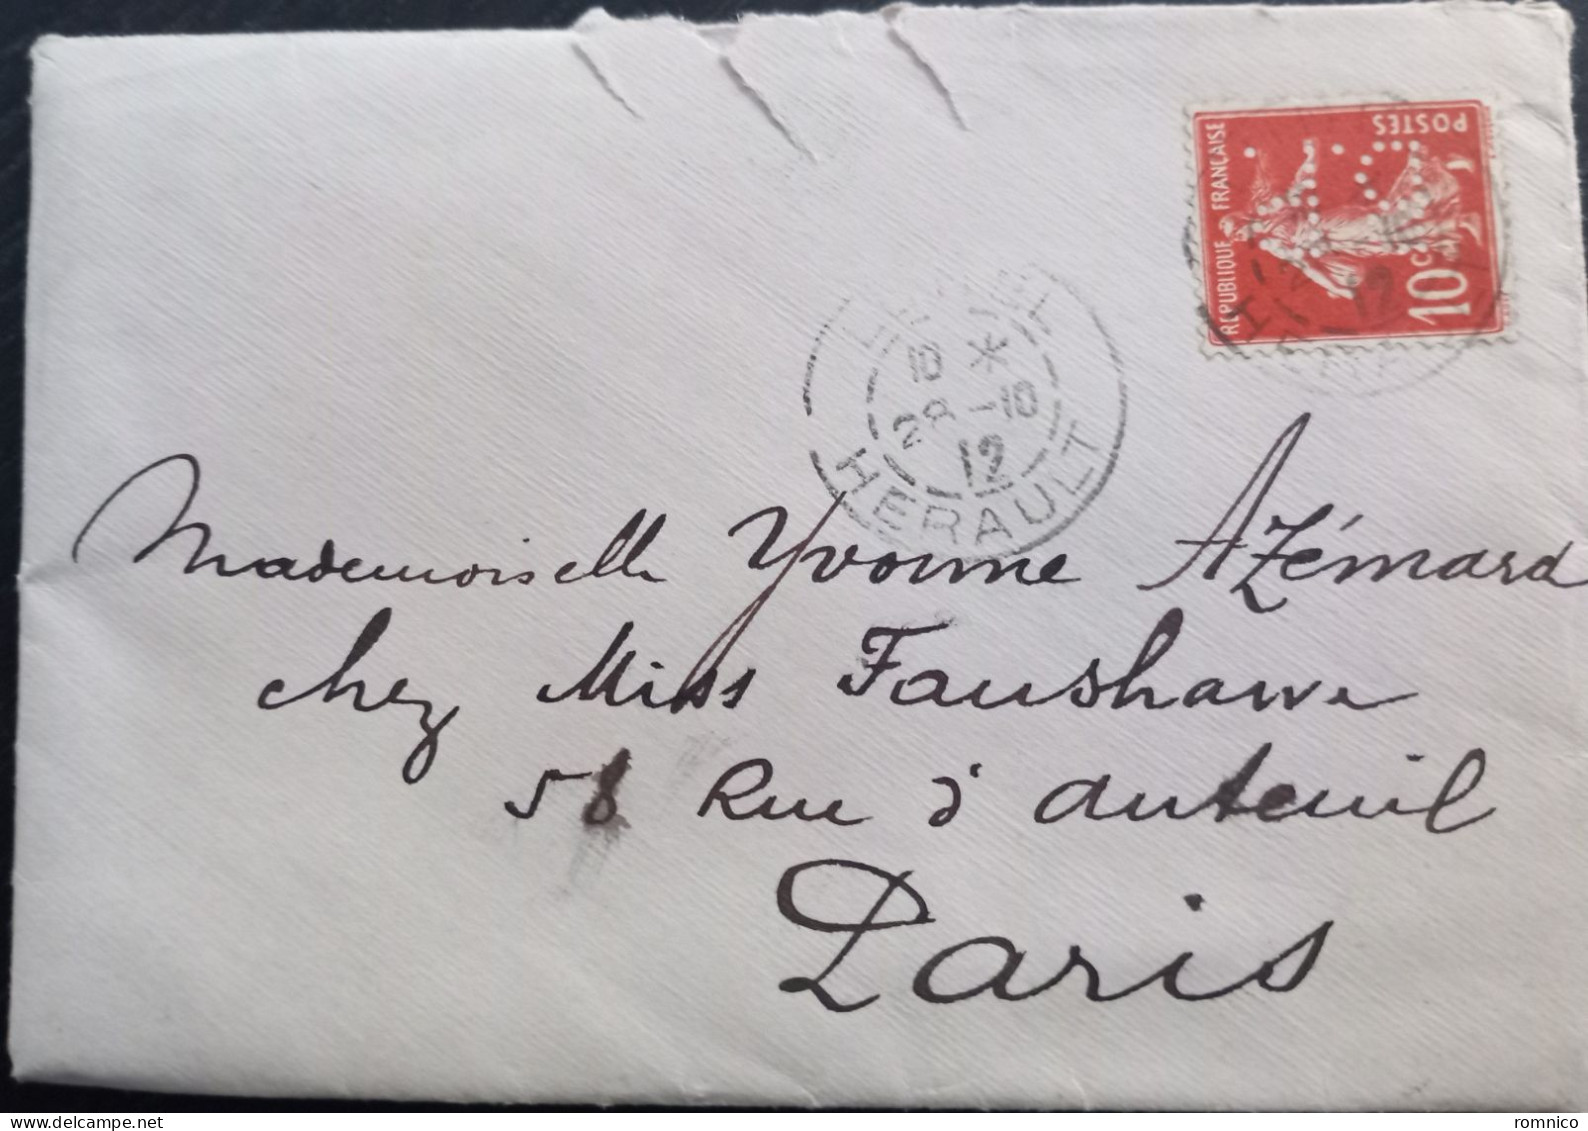 REPUBLIQUE FRANÇAISE
POSTES
10 C
10 *
28 -10
12
HERAULT
Mademoiselle Yvonne Azémard
chez Miss Fanshawe
58 Rue d'auteuil
Paris
romnico